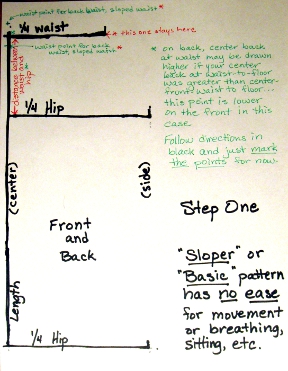 waist point for back waist, sloped waist *
1/4 waist
* this one stays here
* waist point for back
waist, sloped waist *
distance between
waist and
hip
1/4 Hip
* on back, center back
at waist may be drawn
higher if your center
back at waist-to-floor
was greater than center-
front waist to floor...
this point is lower
on the front in this
case.
Follow directions in
black and just mark
the points for now.
(center)
(side)
Front
and
Back
Length
1/4 Hip
Step One
"Sloper" or
"Basic" pattern
has no ease
for movement
or breathing,
sitting, etc.